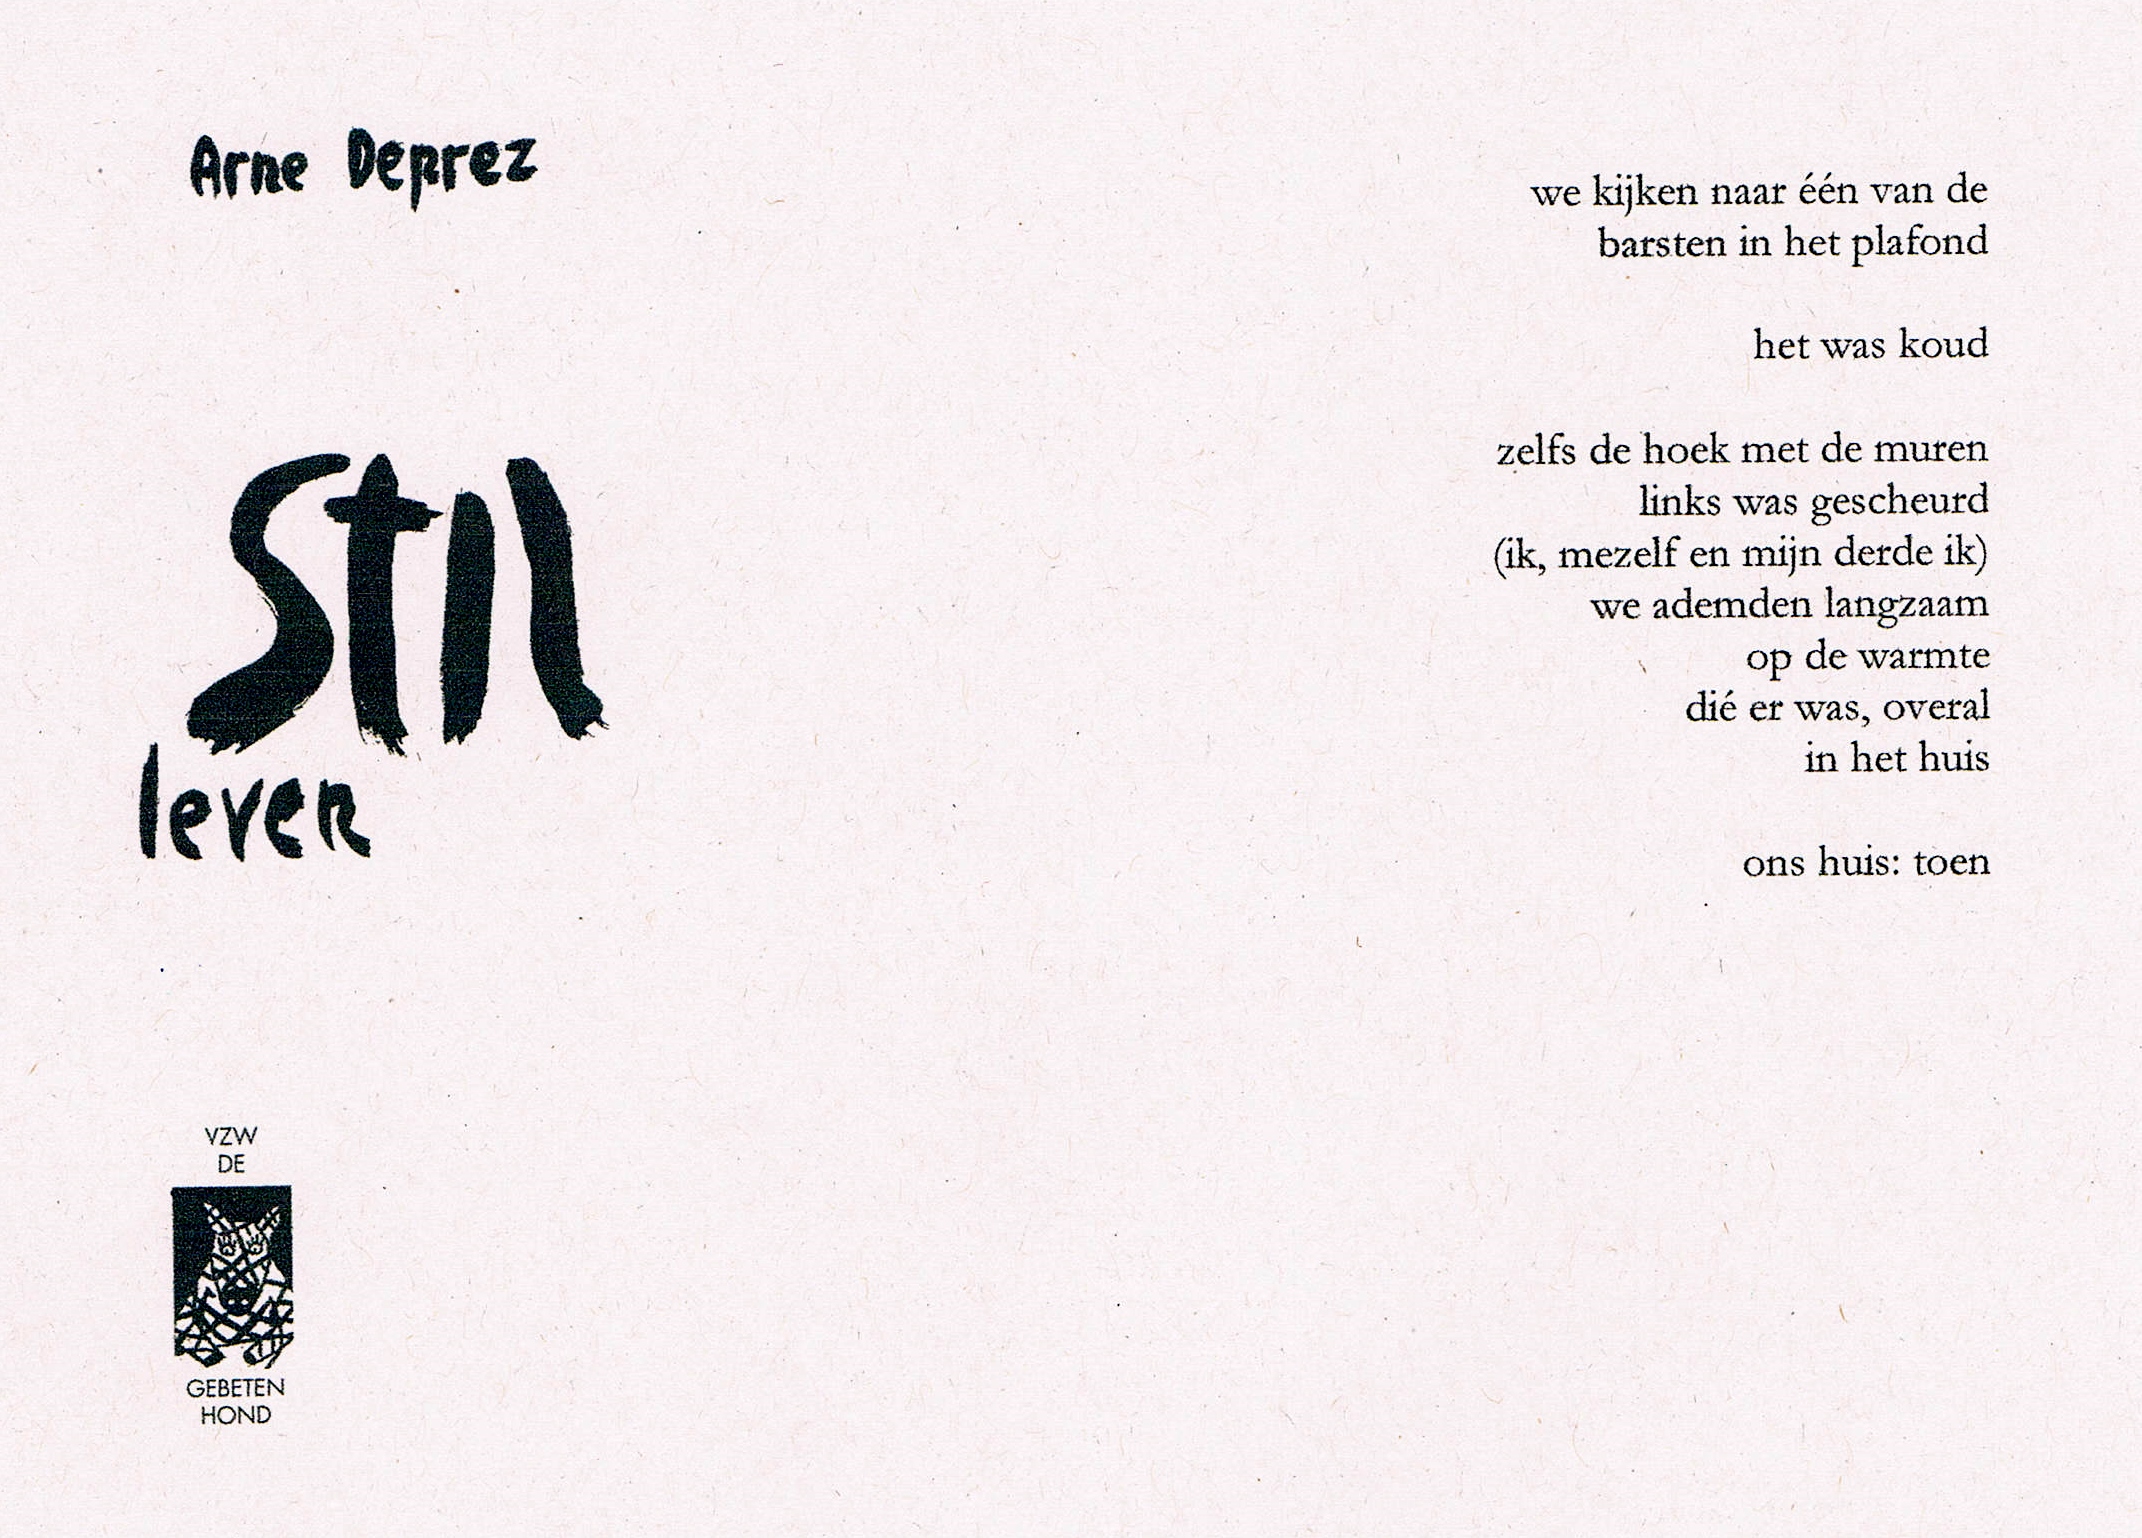 Arne Deprez
Stil
leven
VZW
DE
GEBETEN
HOND
we kijken naar één van de
barsten in het plafond
het was koud
zelfs de hoek met de muren
links was gescheurd
(ik, mezelf en mijn derde ik)
we ademden langzaam
op de warmte
dié er was, overal
in het huis
ons huis: toen